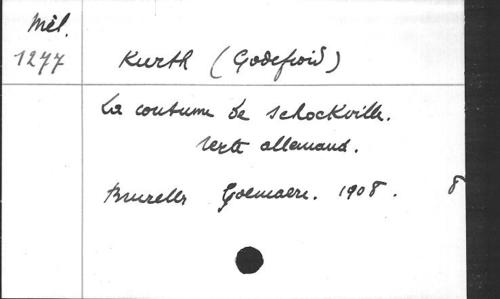 Mél.
1277 Kurth (Godefroid)
La coutume de Schockville.
texte allemand.
Bruxelles Goemaere. 1908. 8